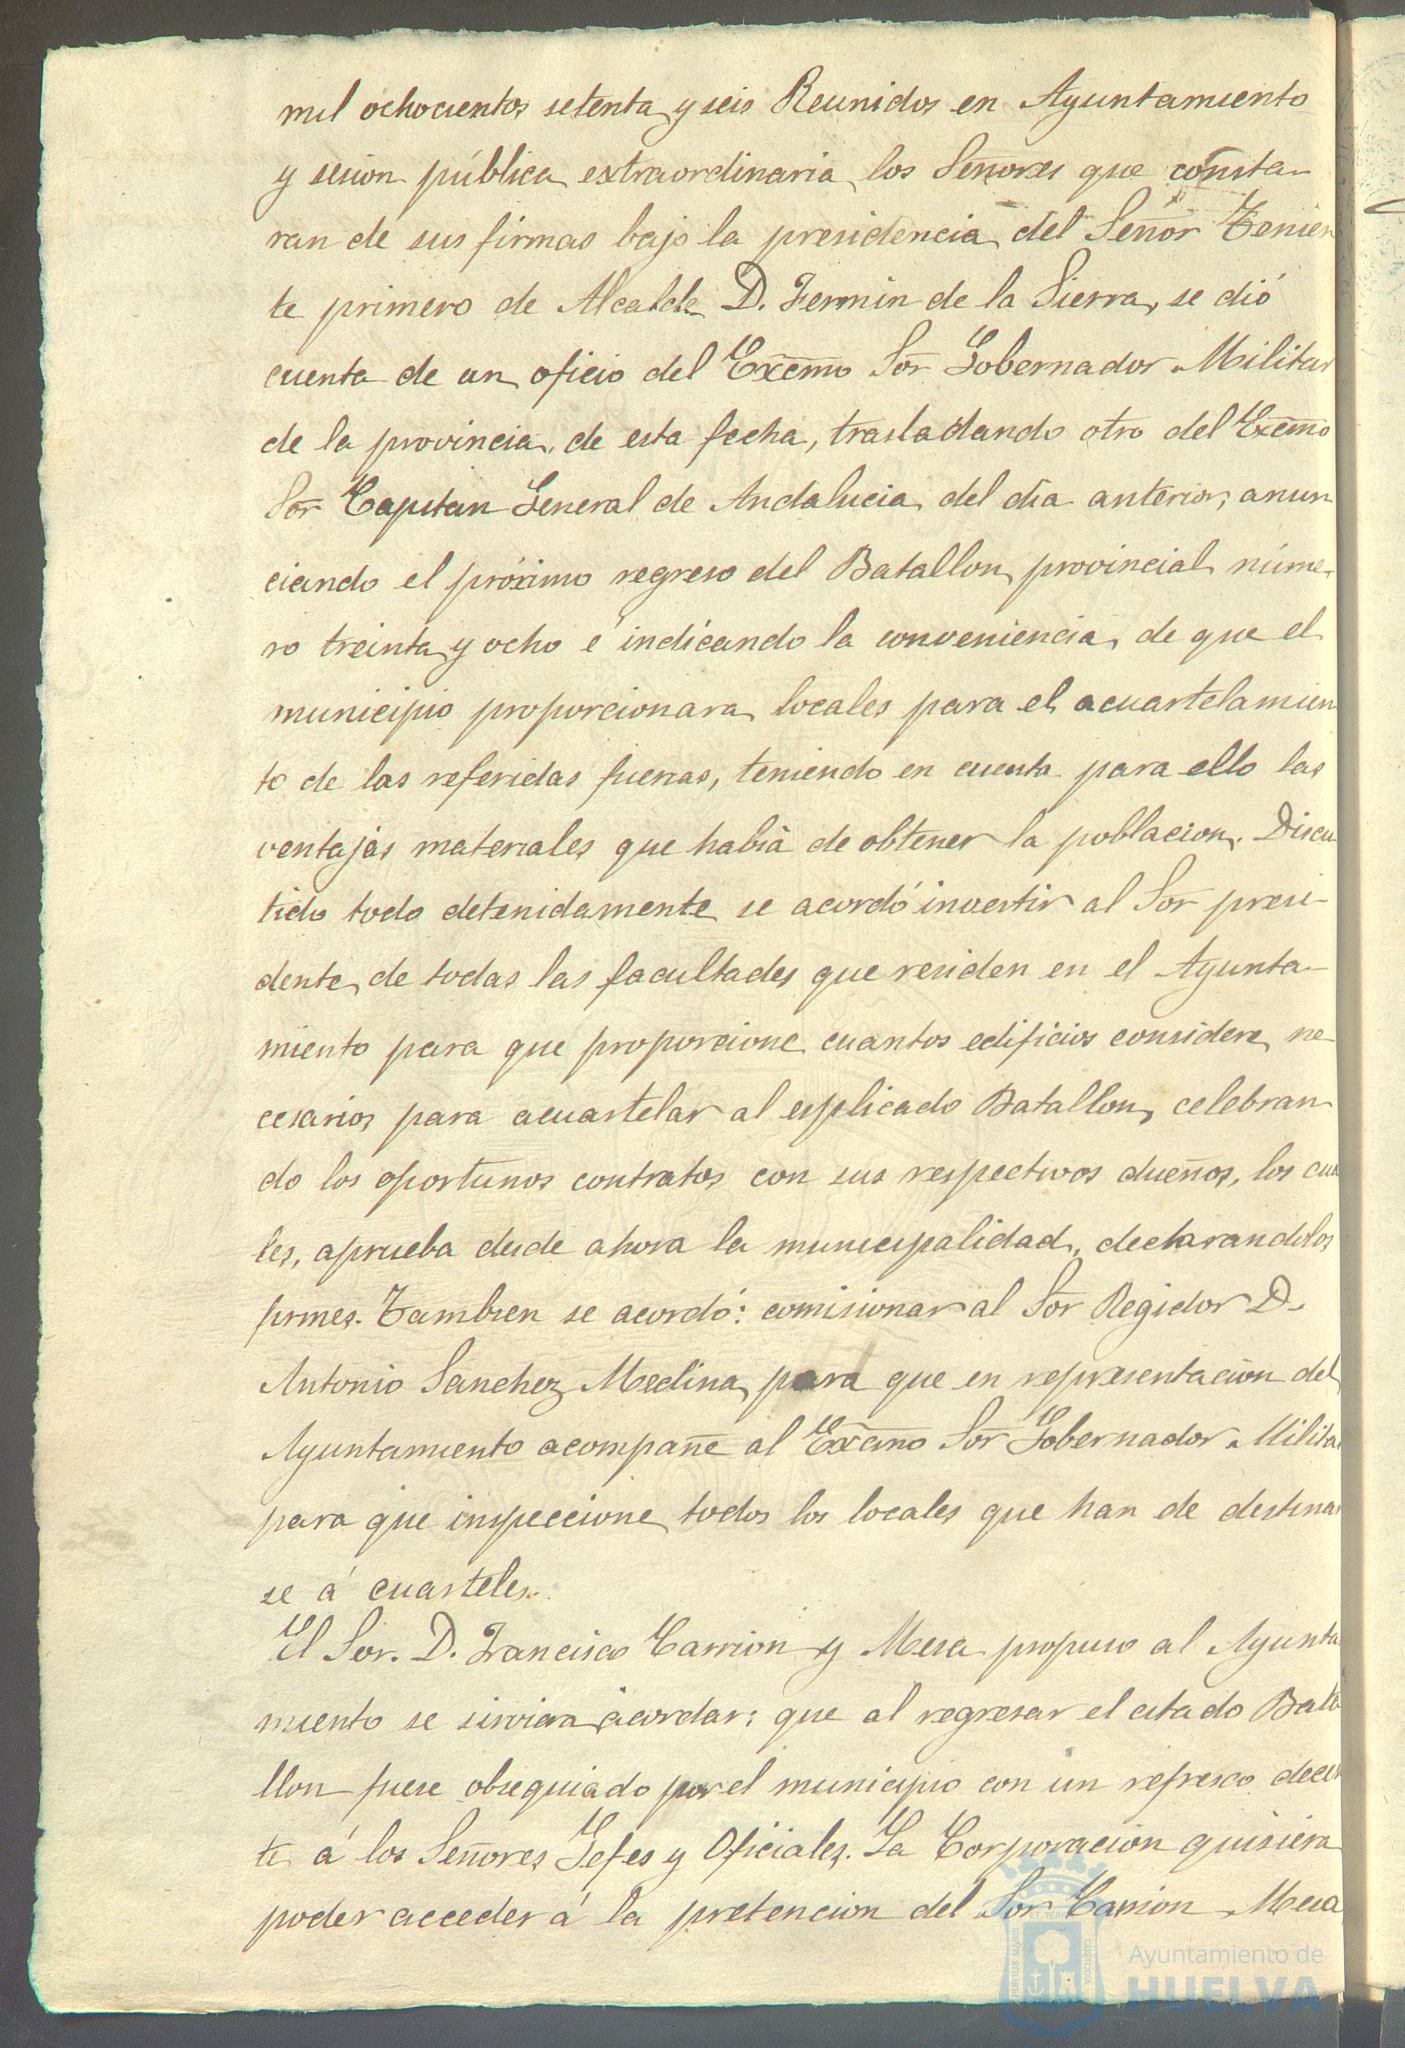 mil ochocientos setenta y seis Reunidos en Ayuntamiento
y sesion pública extraordinaria los Señores que consta-
ran de sus firmas bajo la presidencia del Señor Tenien
te primero de Alcalde D. Fermin de la Sierra, se dió
cuenta de un oficio del Excmo Sor Gobernador Militar
de la provincia, de esta fecha, trasladando otro del Excmo
Sor Capitan General de Andalucia del dia anterior, anun
ciando el próximo regreso del Batallon provincial núme-
ro treinta y ocho é indicando la conveniencia de que el
municipio proporcionara locales para el acuartelamien
to de las referidas fuerzas, teniendo en cuenta para ello las
ventajas materiales que habia de obtener la poblacion. Discu
tido todo detenidamente se acordó investir al Sor presi-
dente de todas las facultades que residen en el Ayunta-
miento para que proporcione cuantos edificios considere ne-
cesarios para acuartelar al esplicado Batallon, celebran-
do los oportunos contratos con sus respectivos dueños, los cua
les, aprueba desde ahora la municipalidad, declarandolos
firmes. Tambien se acordó: comisionar al Sor Regidor D.
Antonio Sanchez Medina, para que en representacion del
Ayuntamiento acompañe al Excmo Sor Gobernador Militar
para que inspeccione todos los locales que han de destinar
se á cuarteles.
El Sor. D. Francisco Carrion y Mesa propuso al Ayunta
miento se sirviera acordar: que al regresar el citado Bata
llon fuese obsequiado por el municipio con un refresco decen
te á los Señores Gefes y Oficiales. La Corporacion quisiera
poder acceder á la pretencion del Sor Carrion Mesa
Ayuntamiento de
HUELVA